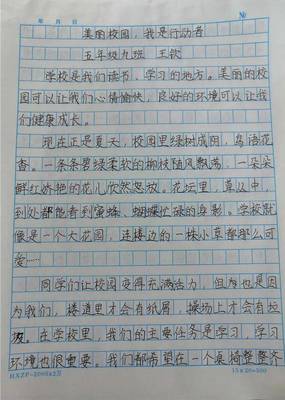 年 月 日 №
美丽校园，我是行动者
五年级九班 王钦
学校是我们读书、学习的地方。美丽的校
园可以让我们心情愉快，良好的环境可以让我
们健康成长。
现在正是夏天，校园里绿树成阴，鸟语花
香。一条条碧绿柔软的柳枝随风飘荡，一朵朵
鲜红娇艳的花儿欣然怒放。花坛里，草丛中，
到处都能看到蜜蜂、蝴蝶忙碌的身影。学校就
像是一个大花园，连楼边的一株小草都那么可
爱……
同学们让校园变得充满活力，但也是因
为我们，楼道里才会有纸屑，操场上才会有垃
圾。在学校里，我们的主要任务是学习，学习
环境也很重要。我们都希望在一个桌椅整整齐
15×20=300